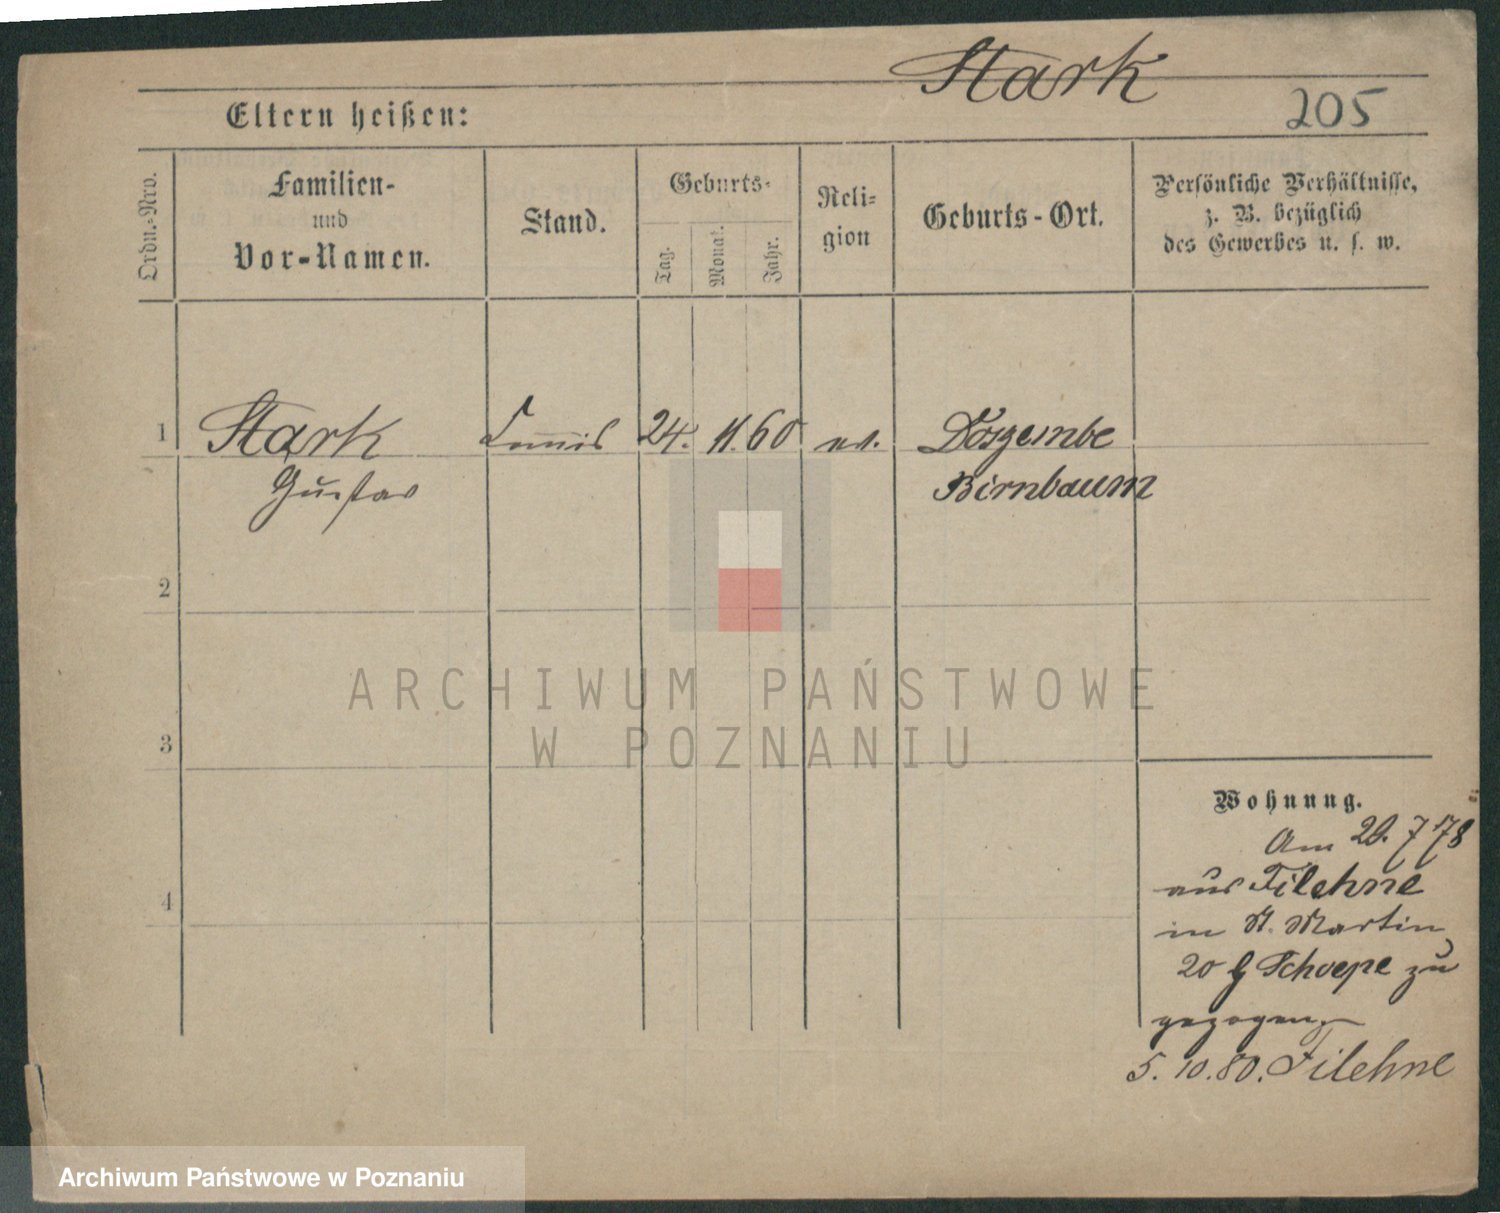 Stark
205
Eltern heißen:
Ordn.-Nro.
Familien-
und
Vor-Namen.
Stand.
Geburts-
Tag.
Monat.
Jahr.
Reli-
gion
Geburts-Ort.
Persönliche Verhältnisse,
z. B. bezüglich
des Gewerbes u. s. w.
1 Stark Commis 24. 11. 60 ev.
Gustav Birnbaum
2
3
ARCHIWUM PAŃSTWOWE
W POZNANIU
4
Wohnung.
Am 20. 7 78
aus Filehne
in St. Martin
20 Schoepe zu
gezogen
5. 10. 80. Filehne
Archiwum Państwowe w Poznaniu